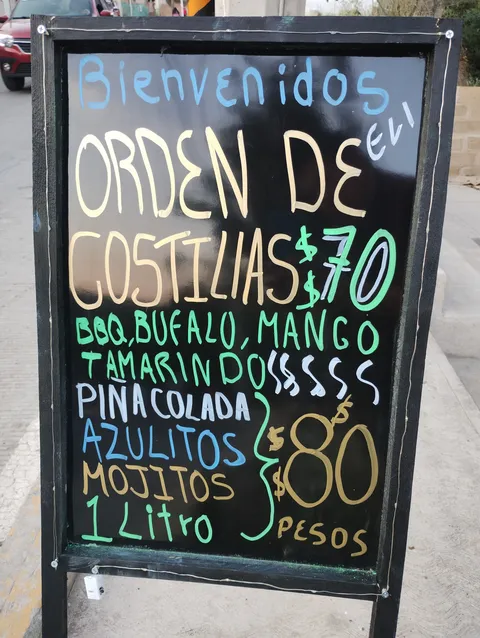 Bienvenidos
ELI
ORDEN DE
COSTILLAS $ $ 70
BBQ, BUFALO, MANGO
TAMARINDO SSSSS
PIÑA COLADA
AZULITOS
MOJITOS
1 Litro
$ $ $ 80
PESOS